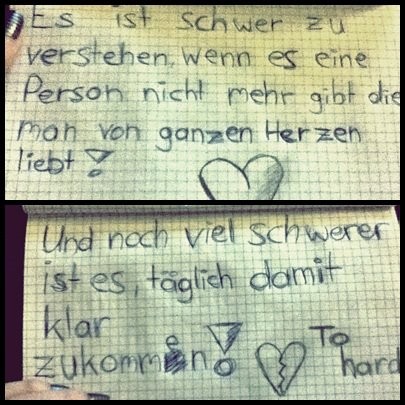 Es ist schwer zu
verstehen, wenn es eine
Person nicht mehr gibt die
man von ganzen Herzen
liebt!
Und noch viel schwerer
ist es, täglich damit
klar
zukommen!
To
hard